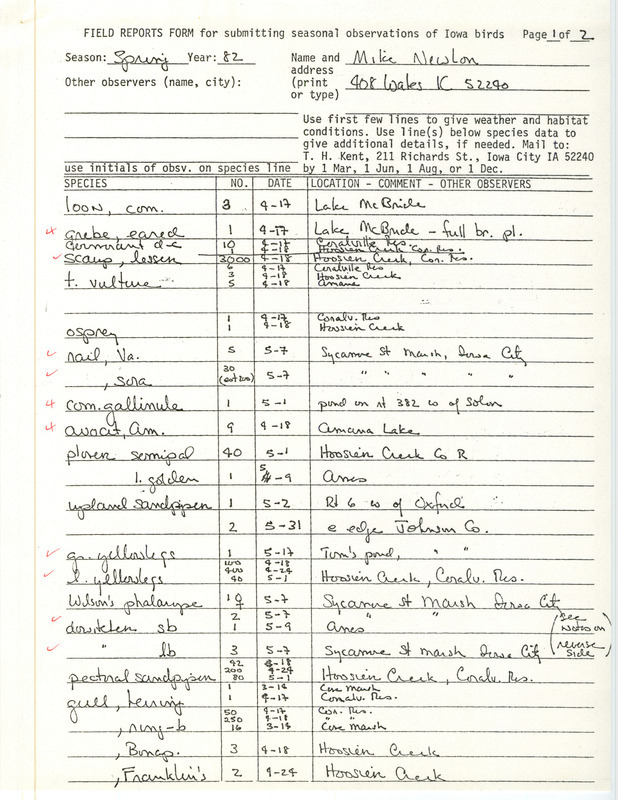 FIELD REPORTS FORM for submitting seasonal observations of Iowa birds Page 1 of 2
Season: Spring Year: 82 Name and Mike Newlon
address
Other observers (name, city): (print 408 Wales IC 52240
or type)
Use first few lines to give weather and habitat
conditions. Use line(s) below species data to
give additional details, if needed. Mail to:
T. H. Kent, 211 Richards St., Iowa City IA 52240
use initials of obsv. on species line by 1 Mar, 1 Jun, 1 Aug, or 1 Dec.
SPECIES NO. DATE LOCATION - COMMENT - OTHER OBSERVERS
loon, com. 3 4-17 Lake McBride
grebe, eared 1 4-17 Lake McBride - full br. pl.
Cormorant d-c 10 4-17 Coralville Res.
1 4-18 Hoosier Creek Cor. Res.
scaup, lesser 3000 4-18 Hoosier Creek, Cor. Res.
t. vulture 6 4-17 Coralville Res
3 4-18 Hoosier Creek
5 4-18 Amana
osprey 1 4-17 Coralv. Res
1 4-18 Hoosier Creek
rail, Va. 5 5-7 Sycamore St Marsh, Iowa City
, sora 30 5-7 " " " " "
com. gallinule 1 5-1 pond on rt 382 w of Solon
avocet, Am. 9 4-18 Amana Lake
plover semipal 40 5-1 Hoosier Creek Co R
l. golden 1 5-9 Ames
upland sandpiper 1 5-2 Rt 6 w of Oxford
2 5-31 e edge Johnson Co.
gr. yellowlegs 1 5-17 Tom's pond, " "
l. yellowlegs 100 4-18
400 4-24
40 5-1 Hoosier Creek, Coralv. Res.
Wilson's phalarope 10 5-7 Sycamore St Marsh Iowa City
2 5-7 " "
dowitcher sb 1 5-9 Ames
" lb 3 5-7 Sycamore St Marsh Iowa City
(see notes on reverse side)
pectoral sandpiper 42 4-18
200 4-24
80 5-1 Hoosier Creek, Coralv. Res.
gull, herring 1 3-14 Cone Marsh
1 4-17 Coralv. Res.
, ring-b 50 4-17 Cor. Res.
250 4-18 " "
16 3-14 Cone Marsh
, Bonap. 3 4-18 Hoosier Creek
, Franklin's 2 4-24 Hoosier Creek